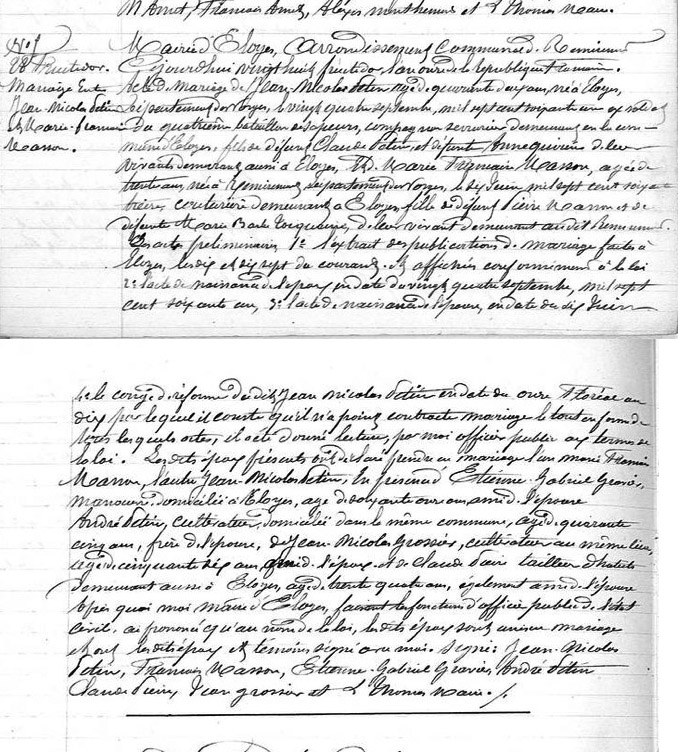 N. Amet, Francois Amet, Alexis Monthemont et L. Thomas Maire.
N° 9
28 Fructidor.
Mariage Entre
Jean Nicolas Petin
et Marie Francoise
Masson.
Mairie d'Eloyes, Arrondissement Communal de Remiremont
Ejourdhui vingt huit fructidor l'an onze de la republique francaise.
Acte de Mariage de Jean Nicolas Petin agé de quarante deux ans, né a Eloyes,
Departement des Vosges, le vingt quatre septembre, mil sept cent soixante un ex soldat
du quatrième bataillon de sapeurs, compagnon serrurier demeurant en la com-
mune d'Eloyes, fils de defunt Claude Petin, et defunte Anne quivine de leur
vivant demeurant aussi a Eloyes, Et D. Marie Francoise Masson, agée de
trente ans, née à Remiremont, Departement des Vosges, le dix Juin mil sept cent soixante
treize couturière demeurant a Eloyes, fille de defunt Pierre Masson et de
defunte Marie Barbe d. leur vivant demeurant audit Remiremont.
Les actes preliminaires 1° l'extrait des publications de mariage faites à
Eloyes, les dix et dix sept du courant et affichés conformément à la loi
2° l'acte de naissance de l'epoux en date du vingt quatre septembre, mil sept
cent soixante un, 3° l'acte de naissance de l'epouse, en date du dix Juin
4° le congé de réforme du dit Jean Nicolas Petin en date du onze floréal an
dix par lequel il conste qu'il n'a point contracté mariage le tout en forme de
tous lesquels actes, il a été donné lecture, par moi officier public aux termes de
la loi. Les dits époux présents ont déclaré prendre en mariage l'un Marie Francoise
Masson, l'autre Jean Nicolas Petin, En présence d'Etienne Gabriel Gravier,
manoeuvre, domicilié à Eloyes, agé de soixante onze ans, ami de l'epouse
André Petin, cultivateur, domicilié dans la même commune, agé de quarante
cinq ans, frère de l'epoux, de Jean Nicolas Grossier, cultivateur au même lieu,
agé de cinquante six ans, ami de l'epoux et de Claude tailleur d'habits
demeurant aussi à Eloyes, agé de trente quatre ans, également ami de l'épouse
Après quoi moi maire d'Eloyes, faisant les fonctions d'officier public de l'état
civil, ai prononcé qu'au nom de la loi, les dits époux sont unis en mariage
et ont les dits époux et témoins signé avec moi. Signé: Jean Nicolas
Petin, Francoise Masson, Etienne Gabriel Gravier, André Petin
Claude Jean grossier et L. Thomas Maire. /.